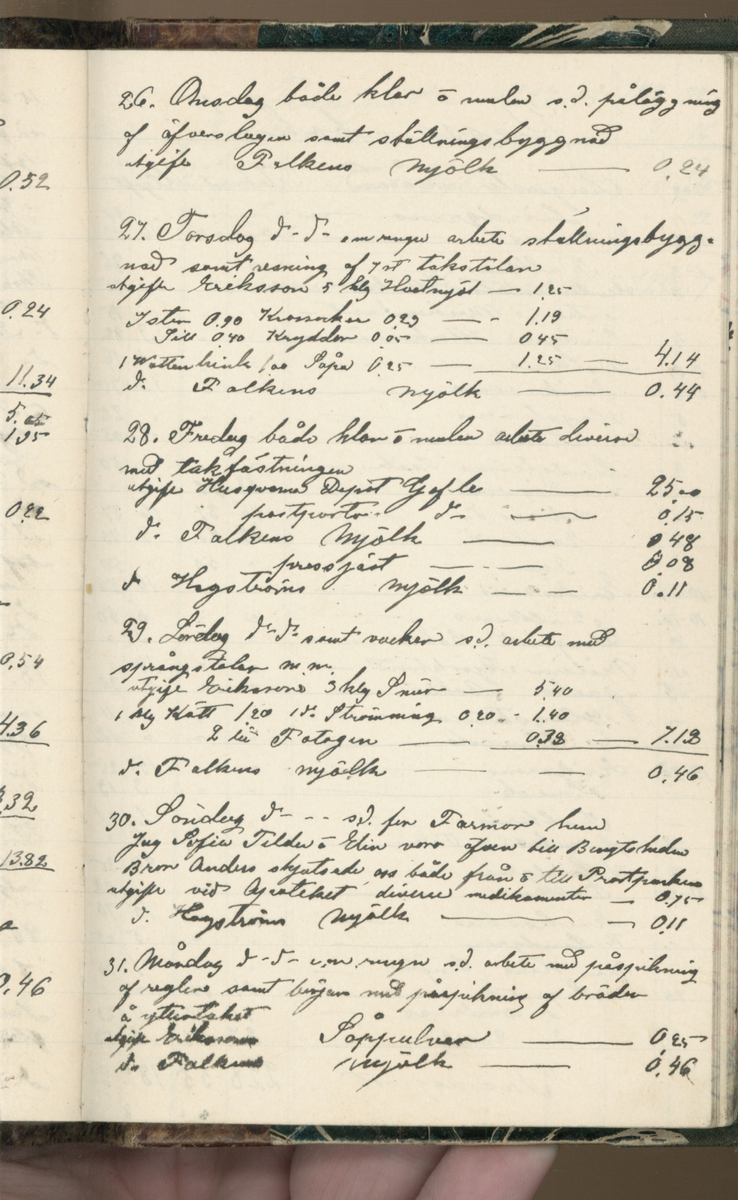 0.52
0.24
11.34
5.05
1.95
0.22
0.54
4.36
3.32
13.82
0.46
26. Onsdag både klar o mulen s.d. påläggning
af öfverslagen samt ställningsbyggnad
utgift Falkens Mjölk — 0.24
27. Torsdag d-d- em regn arbete ställningsbygg-
nad samt resning af 7 st takstolar
utgift Eriksson 5 klg Hvetmjöl — 1.25
Ister 0.90 Krossocker 0.29 — 1.19
Sill 0.40 Kryddor 0.05 — 0.45
1 Wattenhink 1.00 Såpa 0.25 — 1.25 — 4.14
d. Falkens Mjölk — 0.44
28. Fredag både klar o mulen arbete diverse
med takfästningen
utgift Husqvarna Depot Gefle — 25.00
postporto d- — 0.15
d. Falkens Mjölk — 0.48
pressjäst — 0.08
d Hagströms mjölk — 0.11
29. Lördag d-d- samt vacker s.d. arbete med
m.m.
utgift Eriksson 3 klg Smör — 5.40
1 klg Kött 1.20 1 d. Strömming 0.20 - 1.40
2 lit Fotogen — 0.38 — 7.18
d. Falkens mjölk — 0.46
30. Söndag d- - - s.d. for Farmor hem
Jag Sofia Tilda o Elin voro äfven till Bengtsheden
Bror Anders skjutsade oss både från o till
utgift vid Apoteket diverse medikamenter — 0.75
d. Hagströms Mjölk — 0.11
31. Måndag d-d- e.m. regn s.d. arbete med påspikning
af reglar samt början med påspikning af bräder
å yttertaket
utgift Eriksson Såppulver — 0.25
d. Falkens Mjölk — 0.46